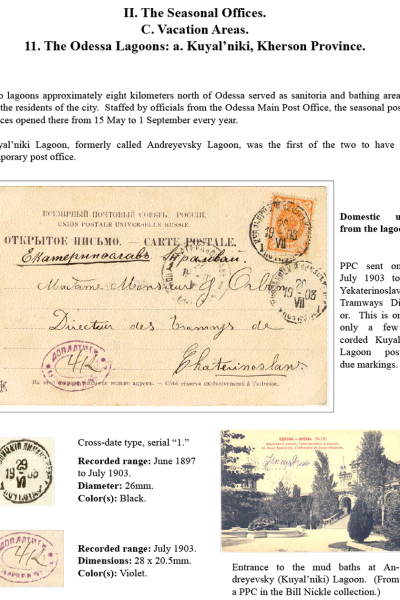 II. The Seasonal Offices.
C. Vacation Areas.
11. The Odessa Lagoons: a. Kuyal’niki, Kherson Province.
o lagoons approximately eight kilometers north of Odessa served as sanitoria and bathing area
the residents of the city. Staffed by officials from the Odessa Main Post Office, the seasonal pos
ces opened there from 15 May to 1 September every year.
yal’niki Lagoon, formerly called Andreyevsky Lagoon, was the first of the two to have
porary post office.
ВСЕМІРНЫЙ ПОЧТОВЫЙ СОЮЗЪ. РОССІЯ.
UNION POSTALE UNIVERSELLE RUSSIE.
ОТКРЫТОЕ ПИСЬМО. — CARTE POSTALE.
Екатеринославъ Трамвай.
Madame Monsieur G.
Directeur des Tramways de
Ekaterinoslaw.
20
19 03
VII
20
19 03
VII
ДОПЛАТИТЬ
4/2
Côté réservé exclusivement à l'adresse.
Domestic u
from the lagoo
PPC sent on
July 1903 to
Yekaterinoslav
Tramways Di
or. This is on
only a few
corded Kuyal
Lagoon pos
due markings.
29
19 03
VI
Cross-date type, serial “1.”
Recorded range: June 1897
to July 1903.
Diameter: 26mm.
Color(s): Black.
ДОПЛАТИТЬ
4/2
Recorded range: July 1903.
Dimensions: 28 x 20.5mm.
Color(s): Violet.
Entrance to the mud baths at An-
dreyevsky (Kuyal’niki) Lagoon. (From
a PPC in the Bill Nickle collection.)